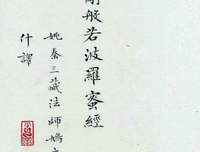 剛般若波羅蜜經
姚秦三藏法師鳩
什譯